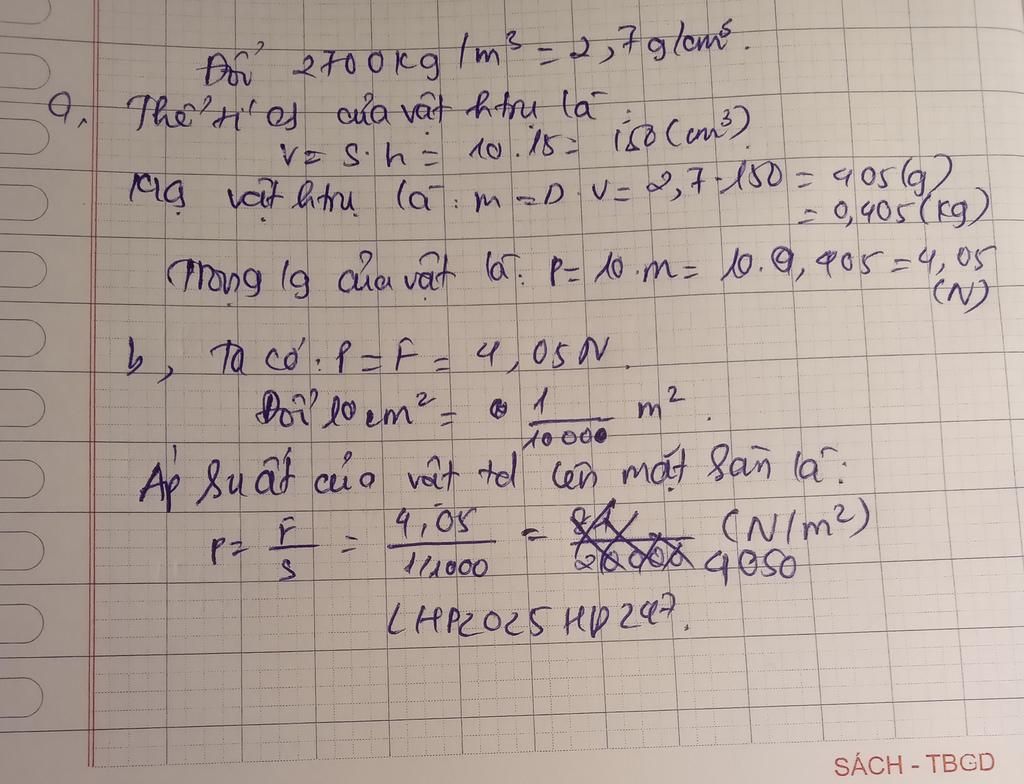 Đổi 2700kg/m³ = 2,7g/cm³.
a, Thể tí cs của vật htrụ là :
V = S.h = 10.15 = 150 (cm³)
Klg vật htrụ là : m = D.V = 2,7.150 = 405(g)
= 0,405(kg)
Trọng lg của vật là: P = 10.m = 10.0,405 = 4,05
(N)
b, Ta có: P = F = 4,05N.
Đổi 10cm² = 1/10000 m².
Áp suất của vật td lên mặt sàn là:
P = F/S = 4,05/1/1000 = 4050 (N/m²)
LHP2025HD247.
SÁCH - TBGD